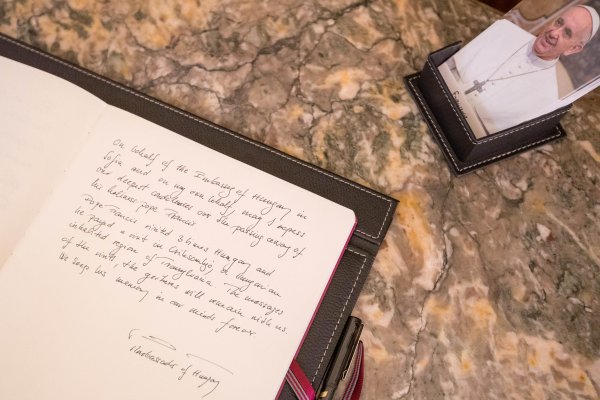 On behalf of the Embassy of Hungary in
Sofia and on my own behalf may I express
our deepest condolences over the passing away of
his holiness pope Francis
Pope Francis visited 3 times Hungary and
he payed a visit in Csíksomlyó, by Hungarian
inhabited region of Transylvania. The messages
of the visit, the gestures will remain with us.
We keep his memory in our minds forever.
Ambassador of Hungary